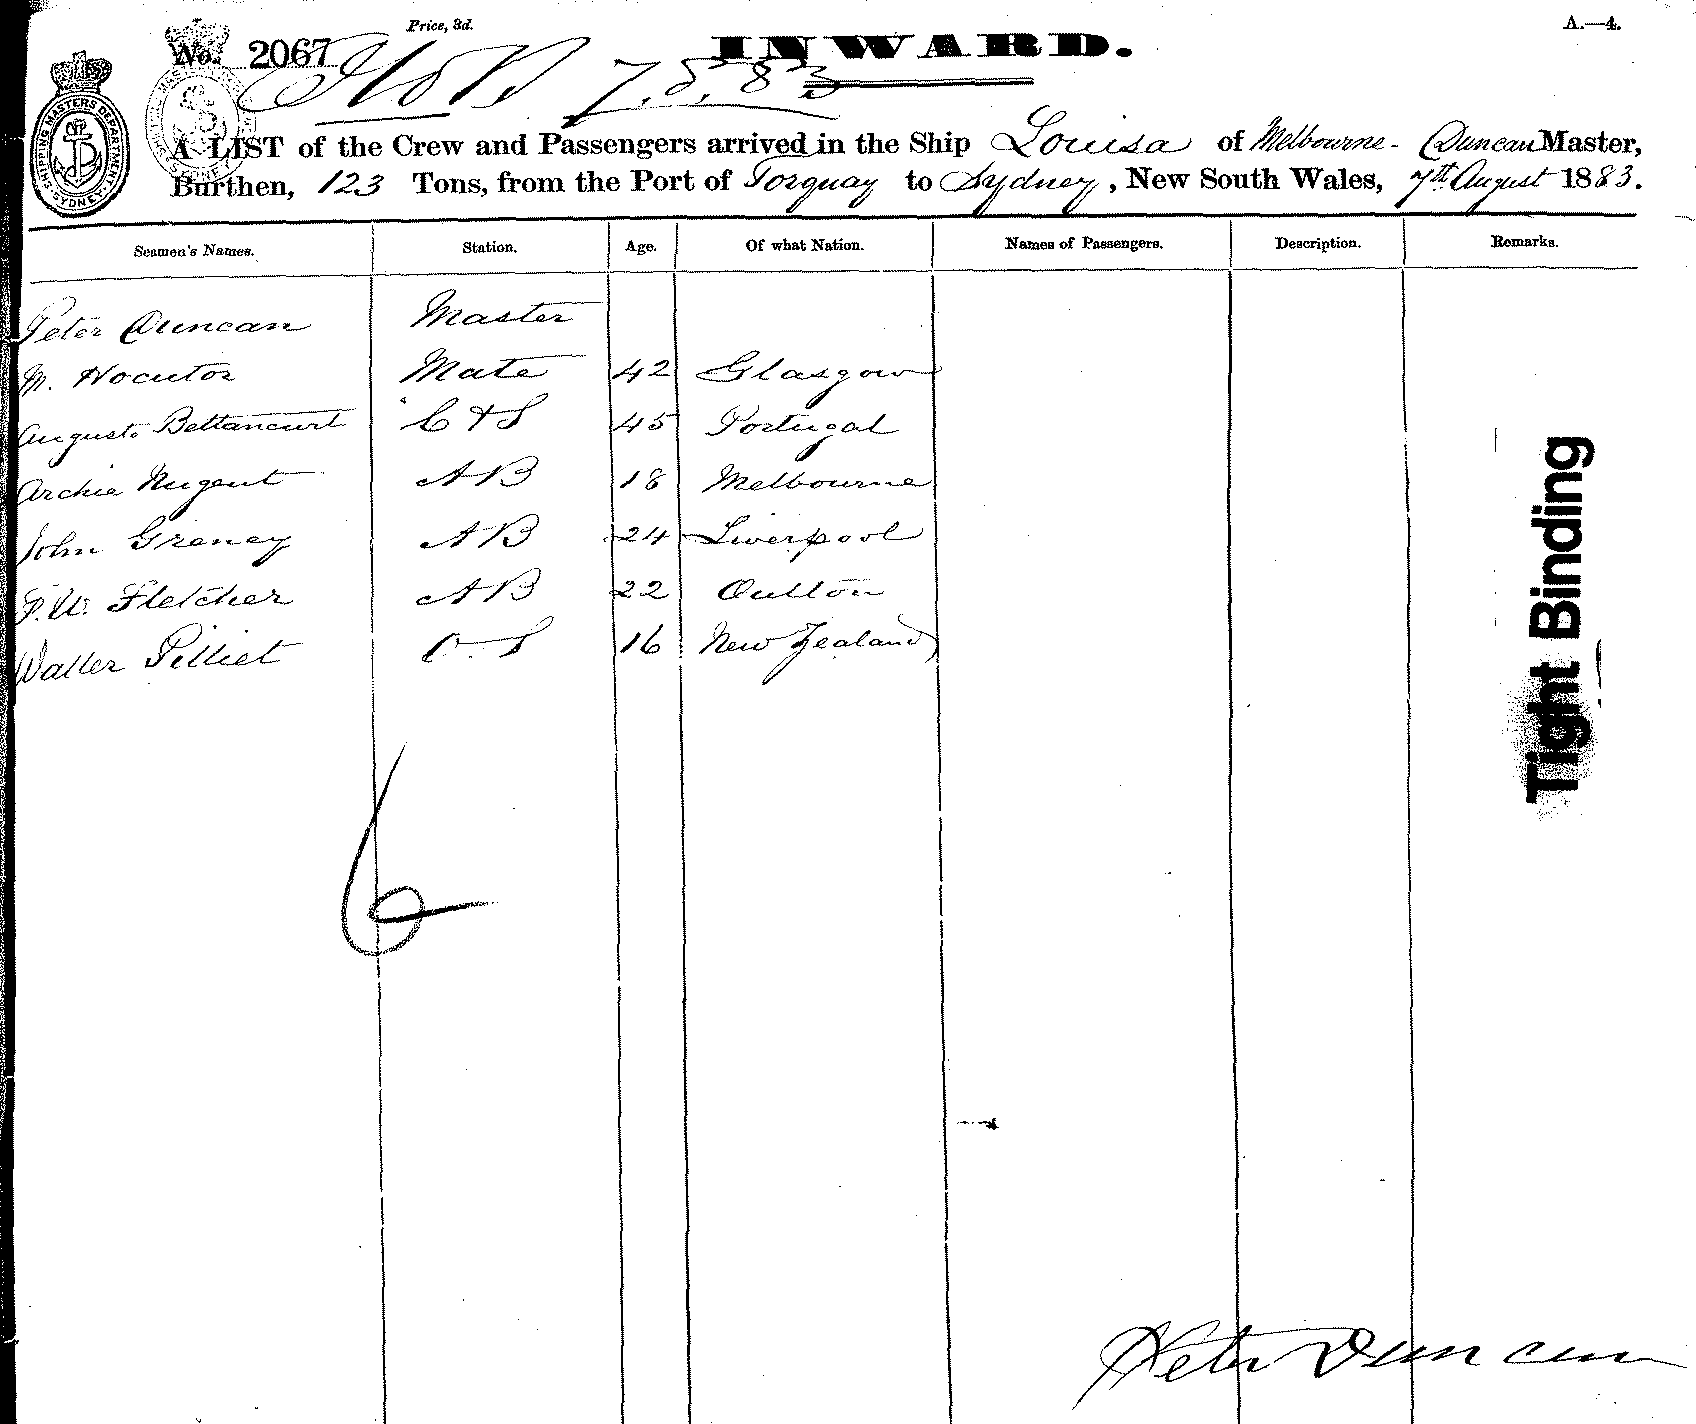 Price, 3d.
A.—4.
No. 2067
INWARD.
7.8.83
SHIPPING MASTERS DEPARTMENT SYDNEY
A LIST of the Crew and Passengers arrived in the Ship Louisa of Melbourne - Duncan Master,
Burthen, 123 Tons, from the Port of Torquay to Sydney, New South Wales, 7th August 1883.
Seamen's Names. Station. Age. Of what Nation. Names of Passengers. Description. Remarks.
Peter Duncan Master
M. Mate 42 Glasgow
Augusto Bettancurt C & S 45 Portugal
Archie Nugent AB 18 Melbourne
John Greney AB 24 Liverpool
F.W. Fletcher AB 22 Oulton
Walter Pilliet O.S 16 New Zealand
6
Tight Binding
Peter Duncan